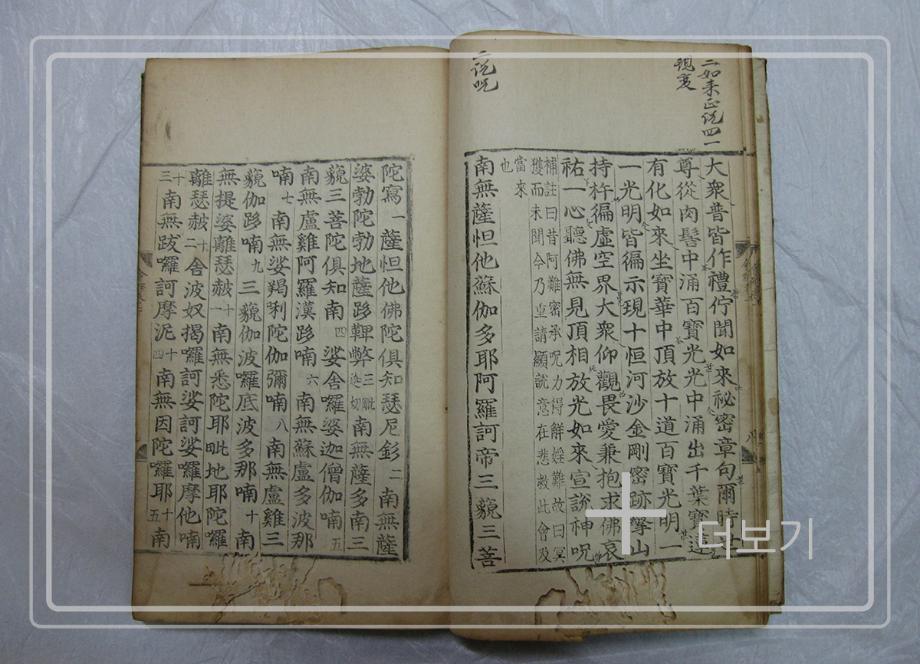 二如來正說四一
現變
大衆普皆作禮佇聞如來祕密章句爾時世
尊從肉髻中涌百寶光光中涌出千葉寶蓮
有化如來坐寶華中頂放十道百寶光明一
一光明皆徧示現十恒河沙金剛密跡擎山
持杵徧虛空界大衆仰觀畏愛兼抱求佛哀
祐一心聽佛無見頂相放光如來宣說神呪
補註曰昔阿難密承呪力得鮮婬難故曰冥
獲而未聞今乃重請願說意在悲救此會及
當來
也
二說呪
南無薩怛他蘇伽多耶阿羅訶帝三藐三菩
陀寫一薩怛他佛陀俱知瑟尼釤二南無薩
婆勃陀勃地薩跢鞞弊三毗迦切南無薩多南三
藐三菩陀俱知南四娑舍囉婆迦僧伽喃五
南無盧雞阿羅漢跢喃六南無蘇盧多波那
喃七南無娑羯唎陀伽彌喃八南無盧雞三
藐伽跢喃九三藐伽波囉底波多那喃十南
無提婆離瑟赧十一南無悉陀耶毗地耶陀囉
離瑟赧十二舍波奴揭囉訶娑訶娑囉摩他喃
十三南無跋囉訶摩泥十四南無因陀囉耶十五南
더보기